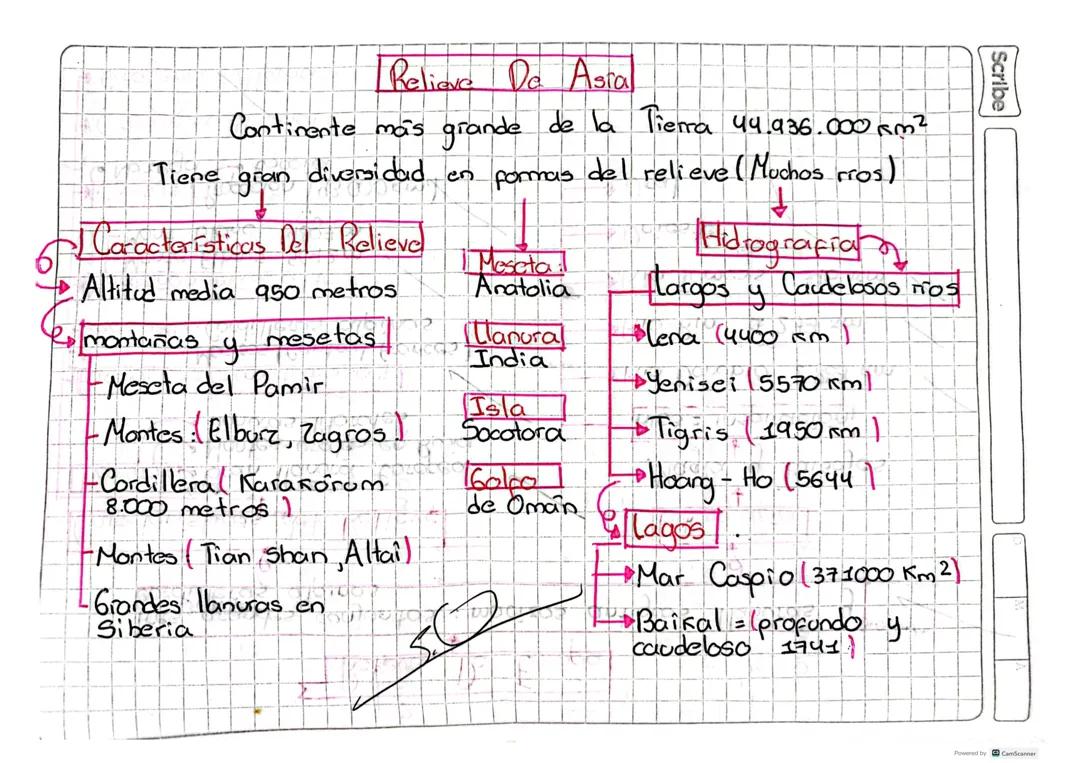 Relieve De Asia
Continente más grande de la Tierra 44.936.000 km²
Tiene gran diversidad en formas del relieve (Muchos ríos)
Características Del Relieve
Altitud media 950 metros
montañas y mesetas
- Meseta del Pamir
- Montes: (Elburz, Zagros.)
- Cordillera (Karakórum
8.000 metros)
- Montes (Tian Shan, Altaí)
- Grandes llanuras en
Siberia
Meseta:
Anatolia
Llanura
India
Isla
Socotora
Golfo
de Omán
Hidrografía
Largos y Caudelosos ríos
Lena (4400 km)
Yenisei (5570 km)
Tigris (1950 km)
Hoang-Ho (5644)
Lagos
Mar Caspio (371000 Km²)
Baikal = (profundo y
caudeloso 1741)
5.0
Scribe
Powered by CamScanner